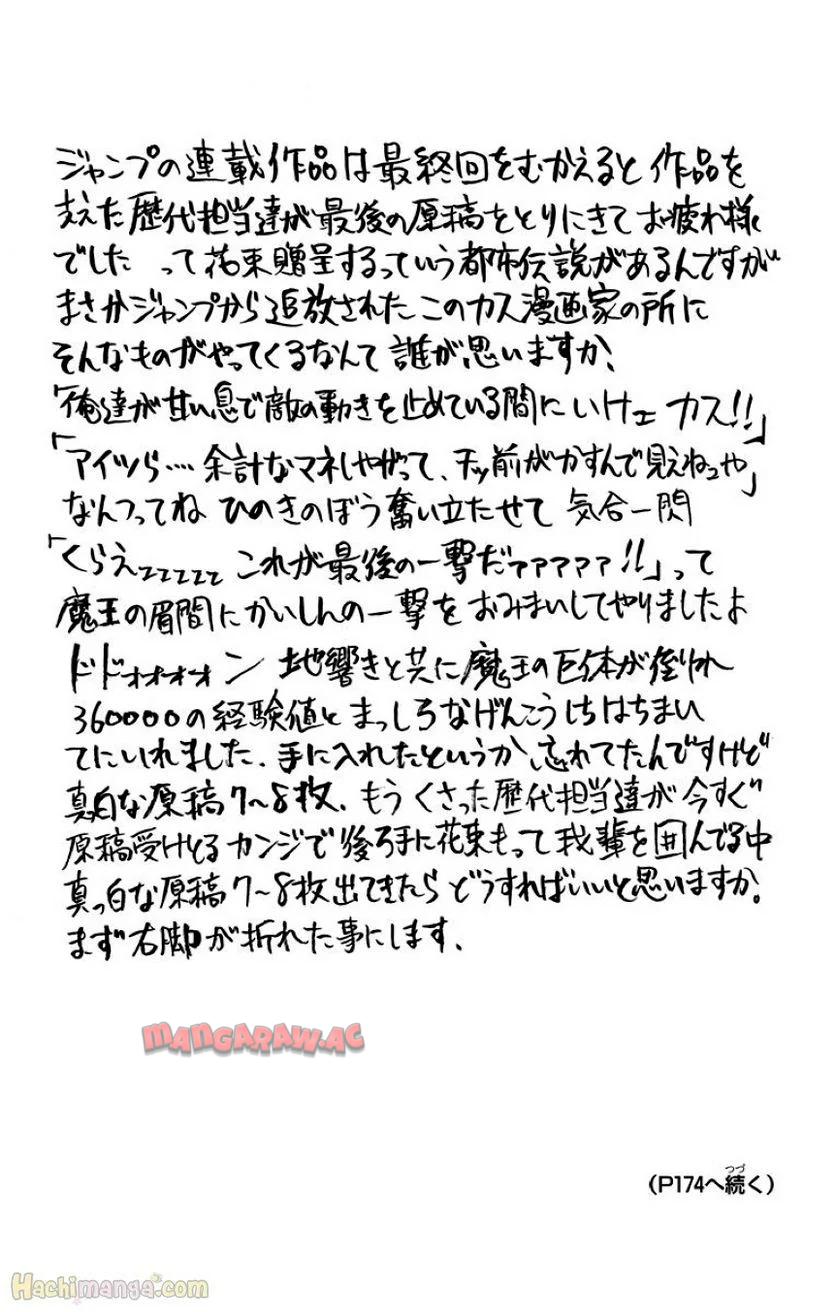 ジャンプの連載作品は最終回をむかえると作品を
支えた歴代担当達が最後の原稿をとりにきてお疲れ様
でした って花束贈呈するっていう都市伝説があるんですが
まさかジャンプから追放されたこのカス漫画家の所に
そんなものがやってくるなんて誰が思いますか、
「俺達が甘い息で敵の動きを止めている間にいけェ カス!!」
「アイツら…. 余計なマネしやがって、チッ前がかすんで見えねェや」
なんつってね ひのきのぼう奮い立たせて 気合一閃
「くらえェェェェェ これが最後の一撃だァァァァァ!!」って
魔王の眉間にかいしんの一撃をおみまいしてやりましたよ
ドドォォォォォン 地響きと共に魔王の巨体が倒れ
360000の経験値とまっしろなげんこうしちはちまい
てにいれました、手に入れたというか、忘れてたんですけど
真白な原稿7〜8枚、もうくさった歴代担当達が今すぐ
原稿受けとるカンジで後ろ手に花束もって我輩を囲んでる中
真っ白な原稿7〜8枚出てきたらどうすればいいと思いますか、
まず右脚が折れた事にします、
MANGARAW.AC
つづ
(P174へ続く)
Hachimanga.com